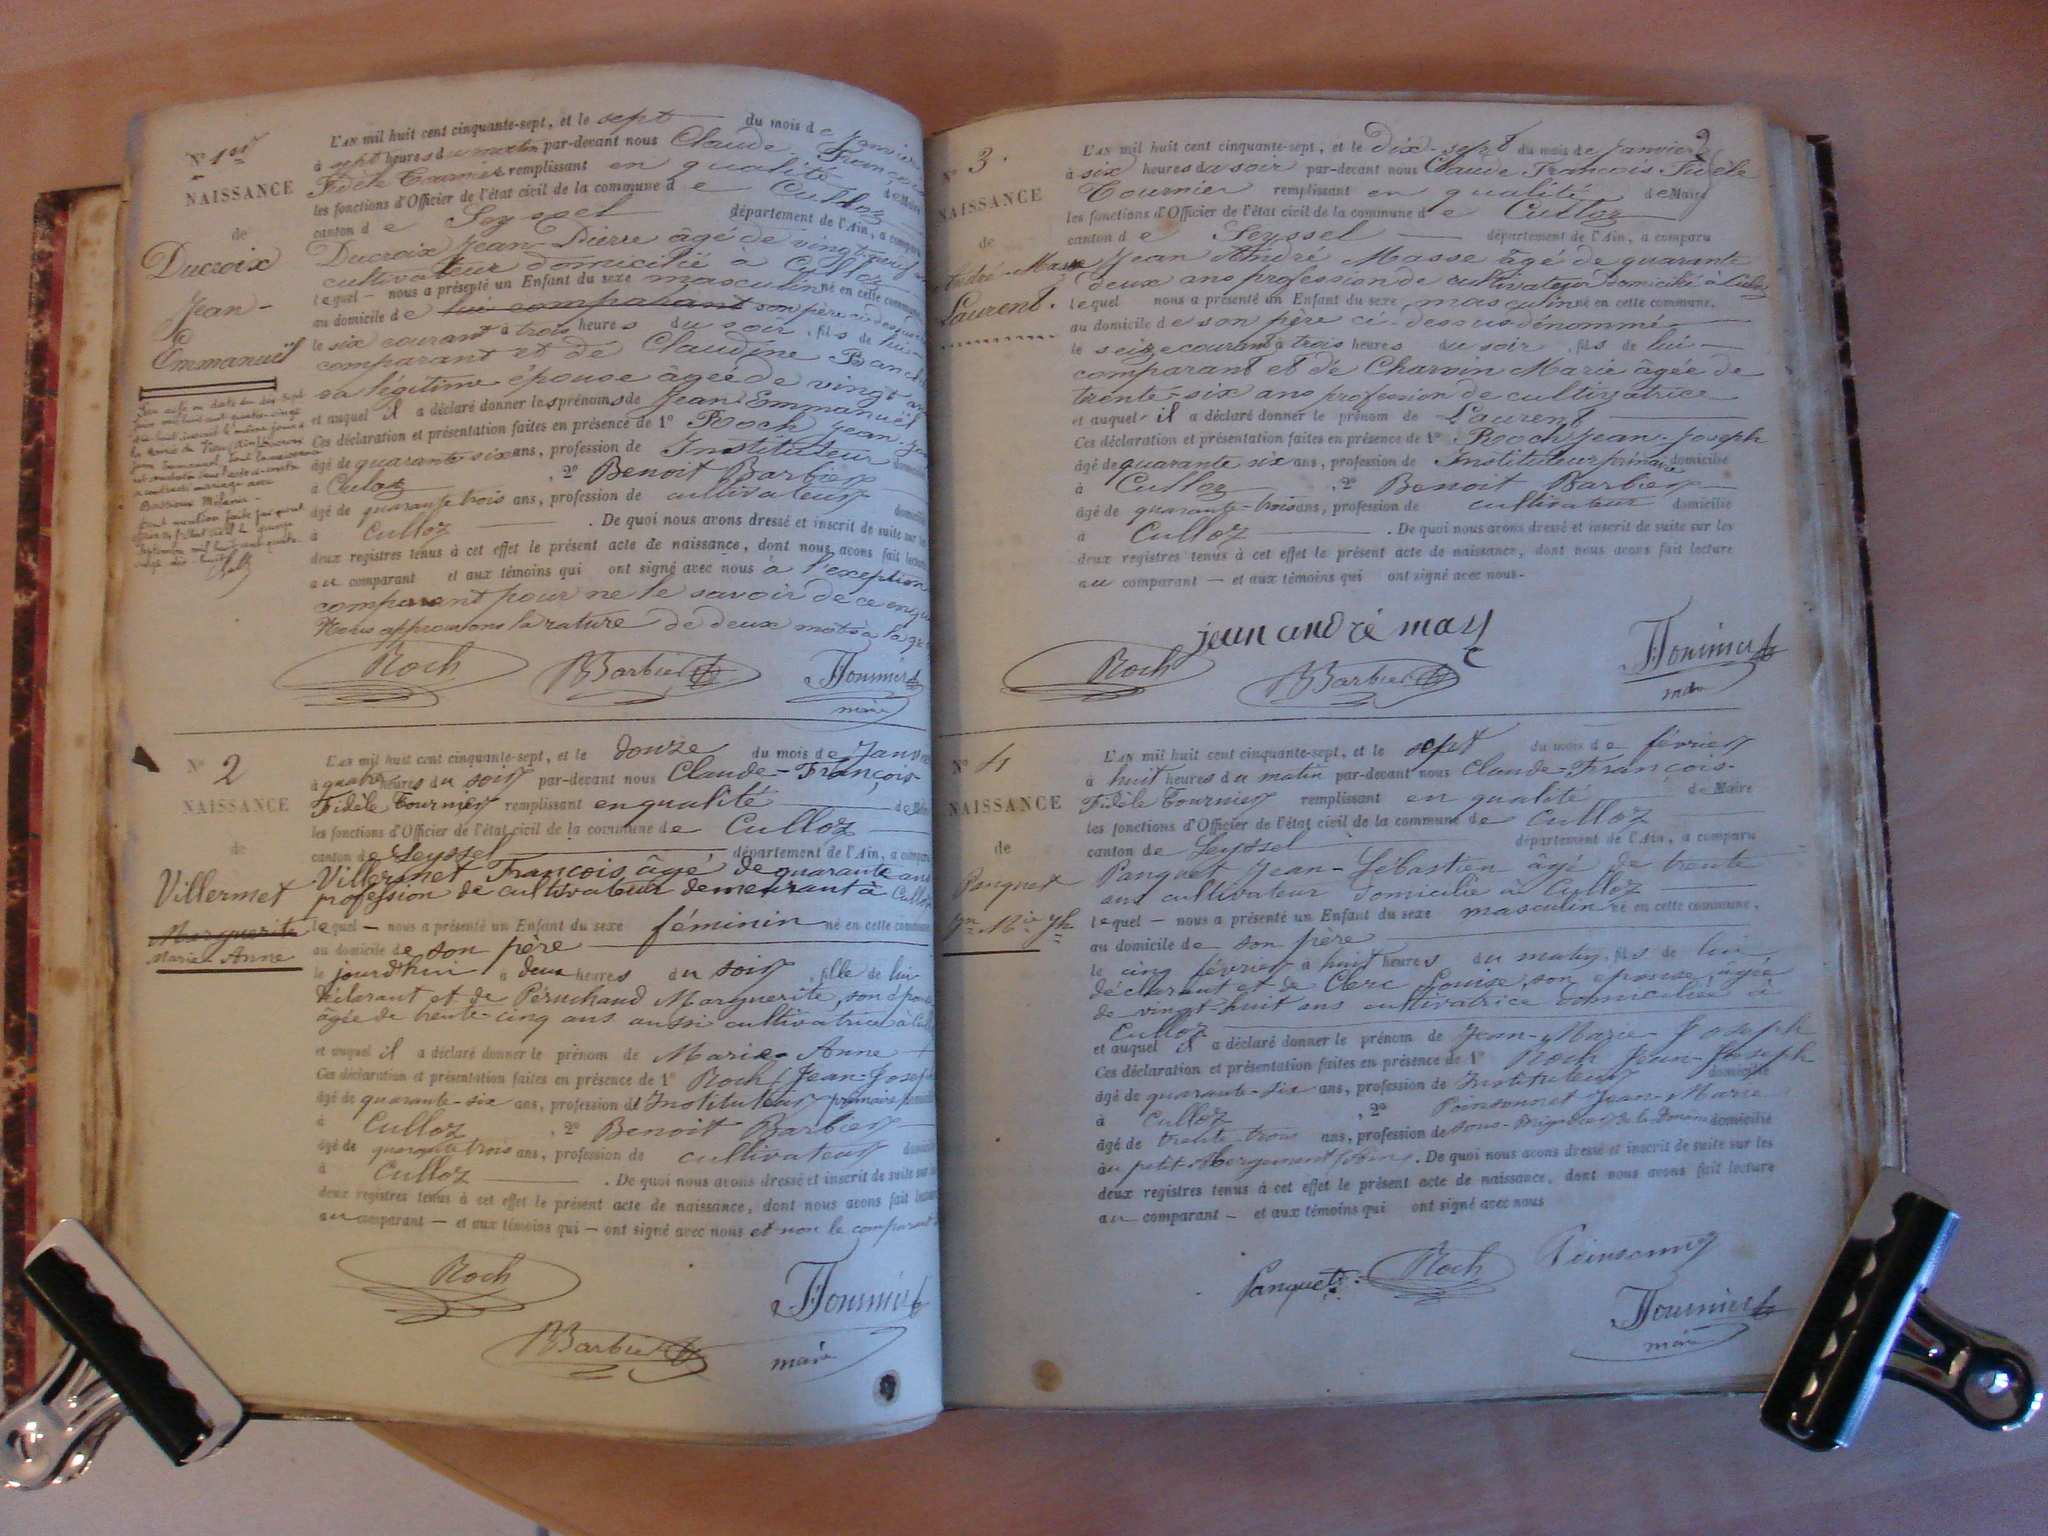 N° 1er
NAISSANCE
de
Ducroix
Jean-
Emmanuël
L'AN mil huit cent cinquante-sept, et le sept du mois de Janvier
à sept heures du matin par-devant nous Claude François
Fidèle Tournier remplissant en qualité de Maire
les fonctions d'Officier de l'état civil de la commune de Culloz
canton de Seyssel département de l'Ain, a comparu
Ducroix Jean-Pierre âgé de vingt
cultivateur domicilié à Culloz
lequel nous a présenté un Enfant du sexe masculin né en cette commune
au domicile de lui comparant son père ci-dessus
le six courant à trois heures du soir, fils de lui
comparant et de Claudine
sa légitime épouse âgée de vingt
et auquel il a déclaré donner les prénoms de Jean Emmanuël
Ces déclaration et présentation faites en présence de 1° Roch Jean
âgé de quarante six ans, profession de Instituteur
à Culoz, 2° Benoit Barbier
âgé de quarante trois ans, profession de cultivateur domicilié
à Culloz. De quoi nous avons dressé et inscrit de suite sur les
deux registres tenus à cet effet le présent acte de naissance, dont nous avons fait lecture
au comparant et aux témoins qui ont signé avec nous à l'exeption
comparant pour ne le savoir de ce enquis
Nous approuvons la rature de deux mots à la
Roch BBarbier Tournier
maire
N° 2
NAISSANCE
de
Villermet
Marguerite
Marie-Anne
L'AN mil huit cent cinquante-sept, et le douze du mois de Janvier
à quatre heures du soir par-devant nous Claude-François-
Fidèle Tournier remplissant en qualité de Maire
les fonctions d'Officier de l'état civil de la commune de Culloz
canton de Seyssel département de l'Ain, a comparu
Villermet François âgé de quarante ans
profession de cultivateur demeurant à Culloz
lequel nous a présenté un Enfant du sexe féminin né en cette commune
au domicile de son père
le jourd'hui à deux heures du soir, fille de lui
déclarant et de Péruchaud Marguerite, son épouse
âgée de trente-cinq ans aussi cultivatrice à
et auquel il a déclaré donner le prénom de Marie-Anne
Ces déclaration et présentation faites en présence de 1° Roch Jean-Joseph
âgé de quarante-six ans, profession de Instituteur primaire domicilié
à Culloz, 2° Benoit Barbier
âgé de quarante trois ans, profession de cultivateur domicilié
à Culloz. De quoi nous avons dressé et inscrit de suite sur les
deux registres tenus à cet effet le présent acte de naissance, dont nous avons fait lecture
au comparant et aux témoins qui ont signé avec nous et non le comparant
Roch Tournier
BBarbier maire
N° 3.
NAISSANCE
de
André-Masse
Laurent.
L'AN mil huit cent cinquante-sept, et le dix-sept du mois de Janvier
à six heures du soir par-devant nous Claude François Fidèle
Tournier remplissant en qualité de Maire
les fonctions d'Officier de l'état civil de la commune de Culloz
canton de Seyssel département de l'Ain, a comparu
Jean André Masse âgé de quarante
deux ans profession de cultivateur domicilié à Culoz
lequel nous a présenté un Enfant du sexe masculin né en cette commune,
au domicile de son père ci-dessus dénommé
le seize courant à trois heures du soir, fils de lui
comparant et de Charvin Marie âgée de
trente-six ans profession de cultivatrice
et auquel il a déclaré donner le prénom de Laurent
Ces déclaration et présentation faites en présence de 1° Roch Jean-Joseph
âgé de quarante six ans, profession de Instituteur primaire domicilié
à Culloz, 2° Benoit Barbier
âgé de quarante-trois ans, profession de cultivateur domicilié
à Culloz. De quoi nous avons dressé et inscrit de suite sur les
deux registres tenus à cet effet le présent acte de naissance, dont nous avons fait lecture
au comparant et aux témoins qui ont signé avec nous.
jean andré mass
Roch BBarbier Tournier
maire
N° 4
NAISSANCE
de
Panguet
Jn Mie Jh
L'AN mil huit cent cinquante-sept, et le sept du mois de février
à huit heures du matin par-devant nous Claude-François-
Fidèle Tournier remplissant en qualité de Maire
les fonctions d'Officier de l'état civil de la commune de Culloz
canton de Seyssel département de l'Ain, a comparu
Panguet Jean-Sébastien âgé de trente
ans cultivateur domicilié à Culloz
lequel nous a présenté un Enfant du sexe masculin né en cette commune,
au domicile de son père
le cinq février à huit heures du matin, fils de lui
déclarant et de Clerc Louise, son épouse, âgée
de vingt-huit ans cultivatrice domiciliée à
Culloz
et auquel il a déclaré donner le prénom de Jean-Marie-Joseph
Ces déclaration et présentation faites en présence de 1° Roch Jean-Joseph
âgé de quarante-six ans, profession de Instituteur domicilié
à Culloz, 2° Poinsonnet Jean-Marie
âgé de trente-trois ans, profession de sous-Brigadier de la Douane domicilié
au petit-Abergement (Ain). De quoi nous avons dressé et inscrit de suite sur les
deux registres tenus à cet effet le présent acte de naissance, dont nous avons fait lecture
au comparant et aux témoins qui ont signé avec nous
Panguet Roch Poinsonnet
Tournier
maire